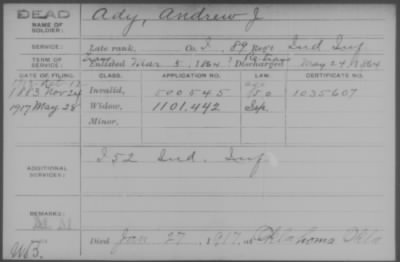 DEAD
NAME OF SOLDIER:
Ady, Andrew J
SERVICE:
Late rank, Co. I, 89 Reg't Ind Inf
TERM OF SERVICE:
Enlisted Mar 5, 1864 Discharged May 24, 1864
DATE OF FILING. CLASS. APPLICATION NO. LAW. CERTIFICATE NO.
1883 Nov 24 Invalid, 500545 1035607
1917 May 28 Widow, 1101,442
Minor,
ADDITIONAL SERVICES:
I 52 Ind. Inf
REMARKS:
Died Jan 27, 1917, at Oklahoma Okla